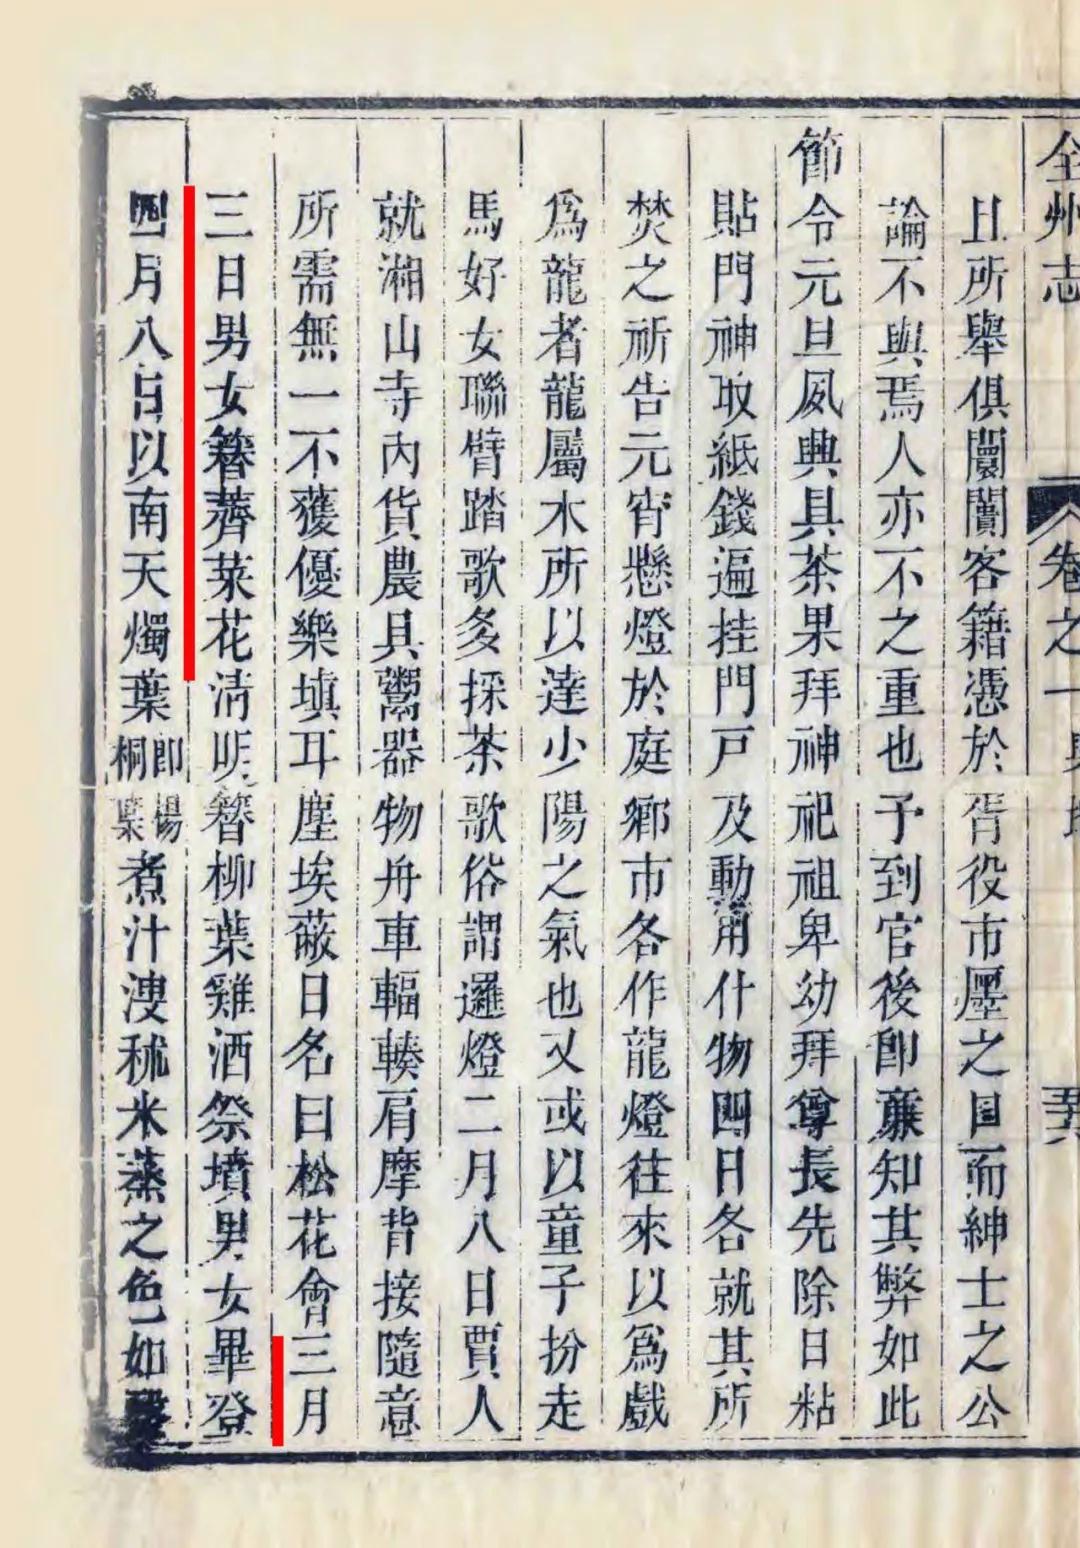 全州志 卷之一
且所舉俱闤闠客籍憑於胥役市廛之目而紳士之公
論不與焉人亦不之重也予到官後即亷知其弊如此
節令元旦夙興具茶果拜神祀祖卑幼拜尊長先除日粘
貼門神取紙錢遍挂門戸及動用什物四日各就其所
焚之祈告元宵懸燈於庭鄉市各作龍燈往來以爲戲
爲龍者龍屬木所以達少陽之氣也又或以童子扮走
馬好女聯臂踏歌多採茶歌俗謂邏燈二月八日賈人
就湘山寺內貨農具鬻器物舟車輻輳肩摩背接隨意
所需無一不獲優樂塡耳塵埃蔽日名曰松花會三月
三日男女簪薺菜花淸明簪柳葉雞酒祭墳男女畢登
四月八日以南天燭葉即楊桐葉煮汁溲秫米蒸之色如